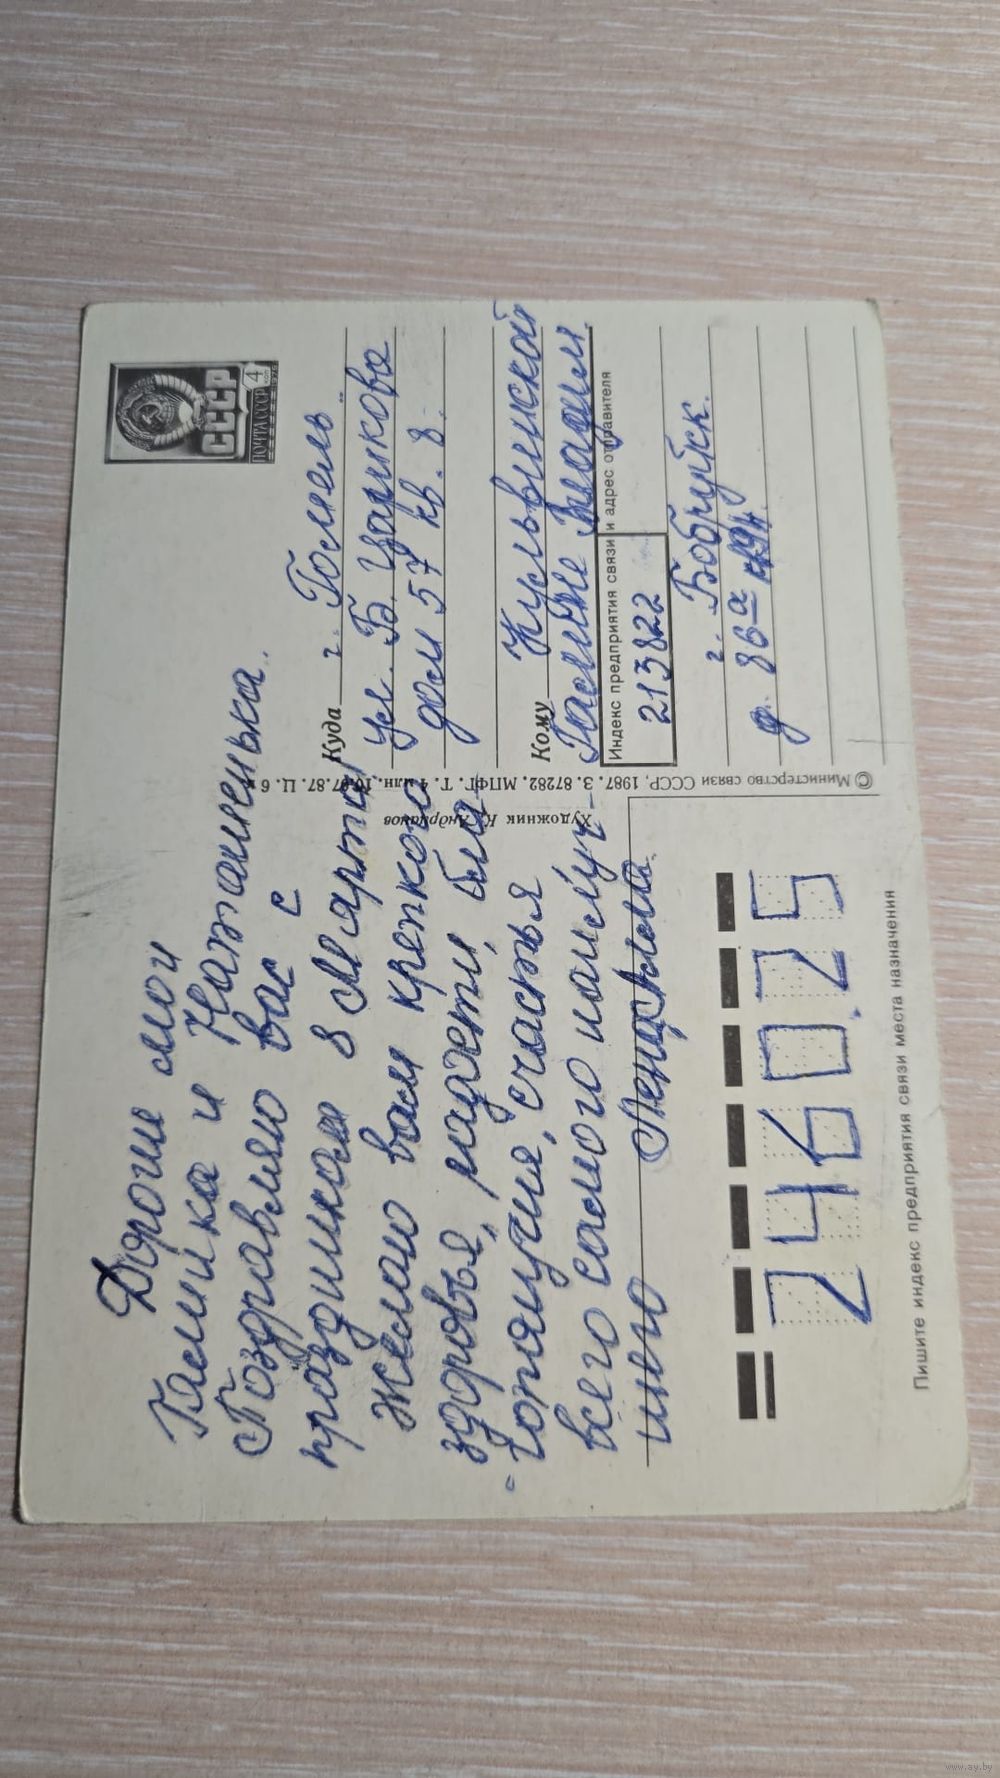 Дорогие мои
Галинка и Наташенька.
Поздравляю вас с
праздником 8 Марта!
Желаю вам крепкого
здоровья, радости, бла-
гополучия, счастья
всего самого наилуч-
шего
ПОЧТА СССР
СССР
4
КОП
1976
Куда г. Гомель
ул. Б. Царикова
дом 57 кв. 8.
Кому
Галине Владим.
Индекс предприятия связи и адрес отправителя
213822
г. Бобруйск.
© Министерство связи СССР. 1987. З. 87282. МПФГ. Т. 4 млн. 16.07.87. Ц. 6 к.
Художник К. Андрианов
246025
Пишите индекс предприятия связи места назначения
www.ay.by